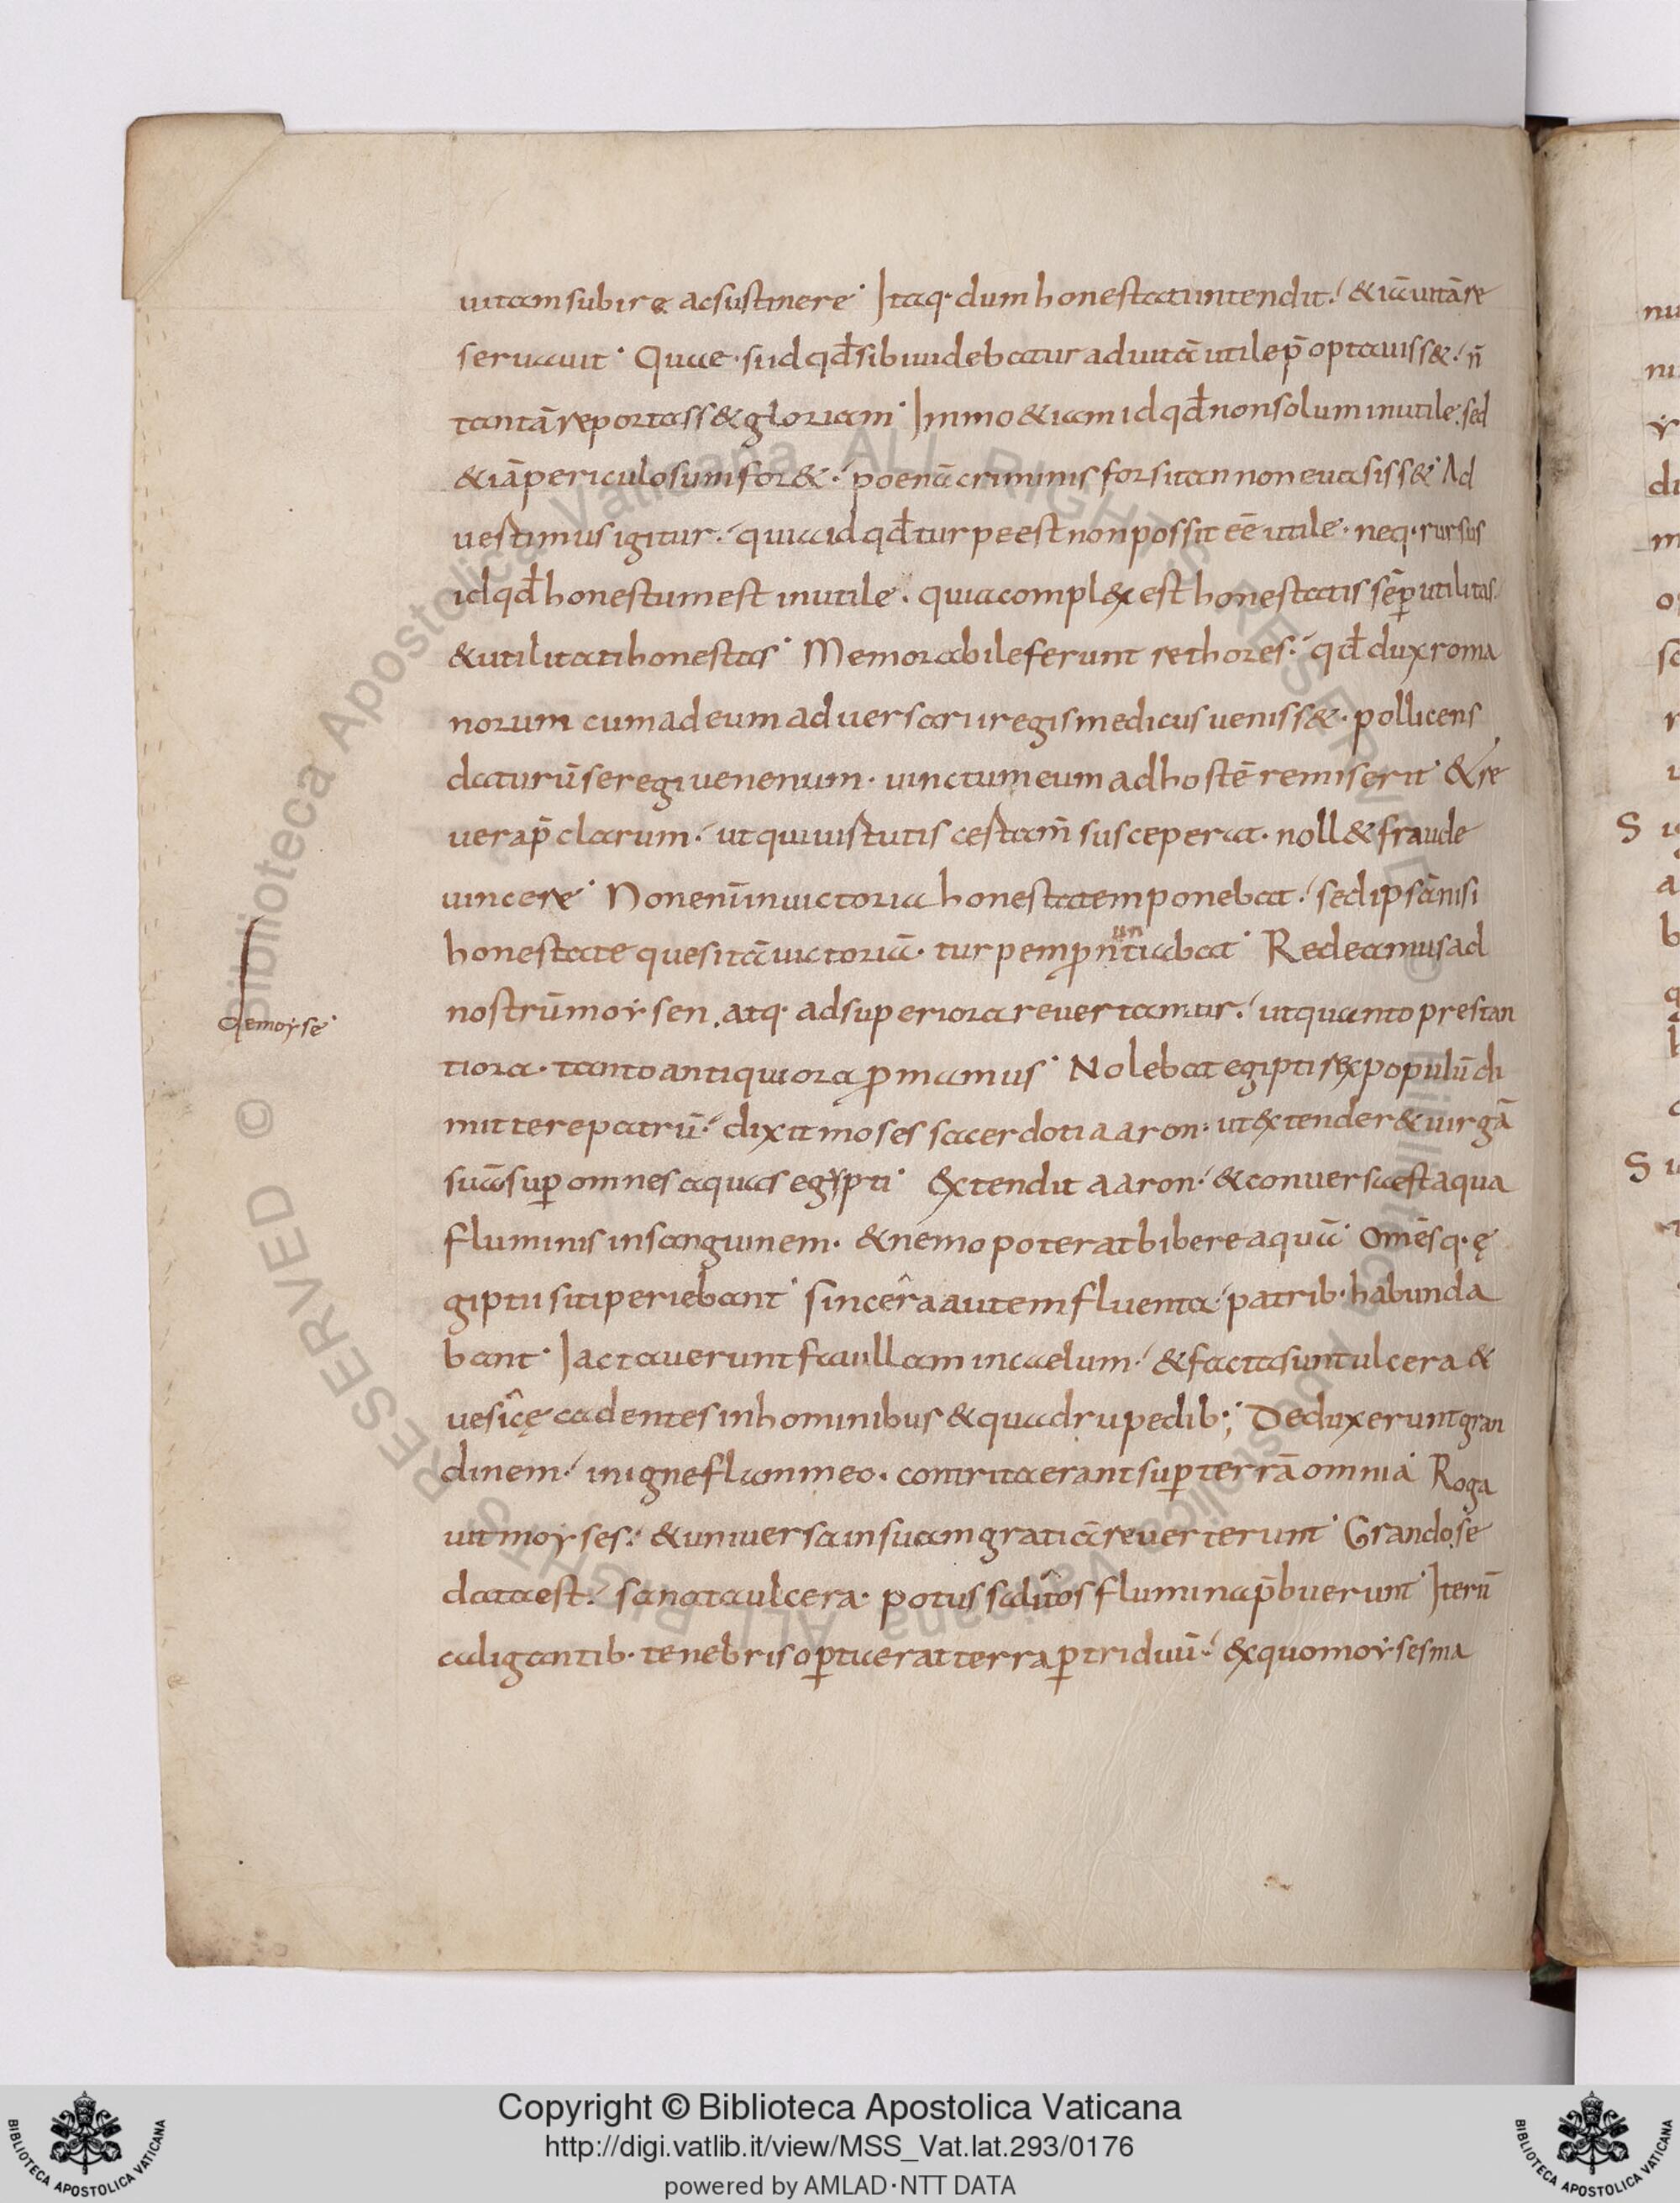 uitam subire ac sustinere· Itaq· dum honestati intendit·/ &iā uitā re
seruauit· Quae· si id qđ sibi uidebatur ad uitā utile p̄optauiss&·/ n̄
tantā reportass& gloriam· Immo &iam id qđ non solum inutile· sed
&iā periculosum for&·/ poenā criminis forsitan non euasiss&· Ad
uertimus igitur·/ quia id qđ turpe est non possit eē utile· neq· rursus
id qđ honestum est inutile· quia complex est honestatis sēp utilitas·/
& utilitati honestas· Memorabile ferunt rethores·/ qđ dux roma
norum cum ad eum aduersarii regis medicus ueniss&· pollicens
daturū se regi uenenum· uinctum eum ad hostē remiserit· & re
uera p̄clarum·/ ut qui uirtutis certam̄ susceperat· noll& fraude
uincere· Non enī in uictoria honestatem ponebat·/ sed ipsā nisi
honestate quesitā uictoriā· turpem pnuntiabat· Redeamus ad
nostrū moẏsen· atq· ad superiora reuertamur·/ ut quanto prestan
De moẏse·
tiora· tanto antiquiora pmamus· Nolebat egipti rex populū di
mittere patrū·/ dixit moses sacerdoti aaron· ut extender& uirgā
suā sup omnes aquas egẏpti· Extendit aaron·/ & conuersa est aqua
fluminis in sanguinem· & nemo poterat bibere aquā· Omēsq· ę
giptii siti periebant· sincera autem fluenta·/ patrib· habunda
bant· Iactauerunt fauillam in caelum·/ & facta sunt ulcera &
uesicę cadentes in hominibus & quadrupedib·; Deduxerunt gran
dinem·/ in igne flammeo· contrita erant sup terrā omnia· Roga
uit moẏses·/ & uniuersa in suam gratiā reuerterunt· Grando se
data est·/ sanata ulcera· potus solitos flumina p̄buerunt· Iterū
caligantib· tenebris opta erat terra p triduū·/ ex quo moẏses ma
Copyright © Biblioteca Apostolica Vaticana
http://digi.vatlib.it/view/MSS_Vat.lat.293/0176
powered by AMLAD·NTT DATA